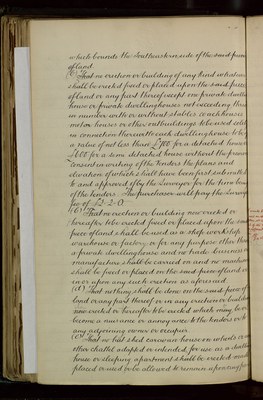 which bounds the Southeastern side of the said piece
of land.
(b) That no erection or building of any kind whatsoever
shall be erected fixed or placed upon the said piece
of land or any part thereof except one private dwelling
house or private dwellinghouses not exceeding three
in number with or without stables coach houses
motor houses or other outbuildings to be used only
in connection therewith each dwellinghouse to be of
a value of not less than £700 for a detached house
£600 for a semi detached house without the previous
consent in writing of the Vendors the plans and
elevation of which shall have first been submitted
to and approved of by the Surveyor for the time being
of the Vendors. The purchasers will pay the Surveyors
fee of £2-2-0
(c) That no erection or building now erected or
hereafter to be erected fixed or placed upon the said
piece of land shall be used as a shop workshop
warehouse or factory or for any purpose other than
a private dwellinghouse and no trade business or
manufacture shall be carried on and no machinery
shall be fixed or placed on the said piece of land or
in or upon any such erection as aforesaid
(d) That nothing shall be done on the said piece of
land or any part thereof or in any erection or building
now erected or hereafter to be erected which may be or
become a nuisance or annoyance to the Vendors or to
any adjoining owner or occupier
(e) That no hut shed caravan house on wheels or
other chattel adapted or intended for use as a dwelling
house or sleeping apartment shall be erected made
placed or used or be allowed to remain upon any part